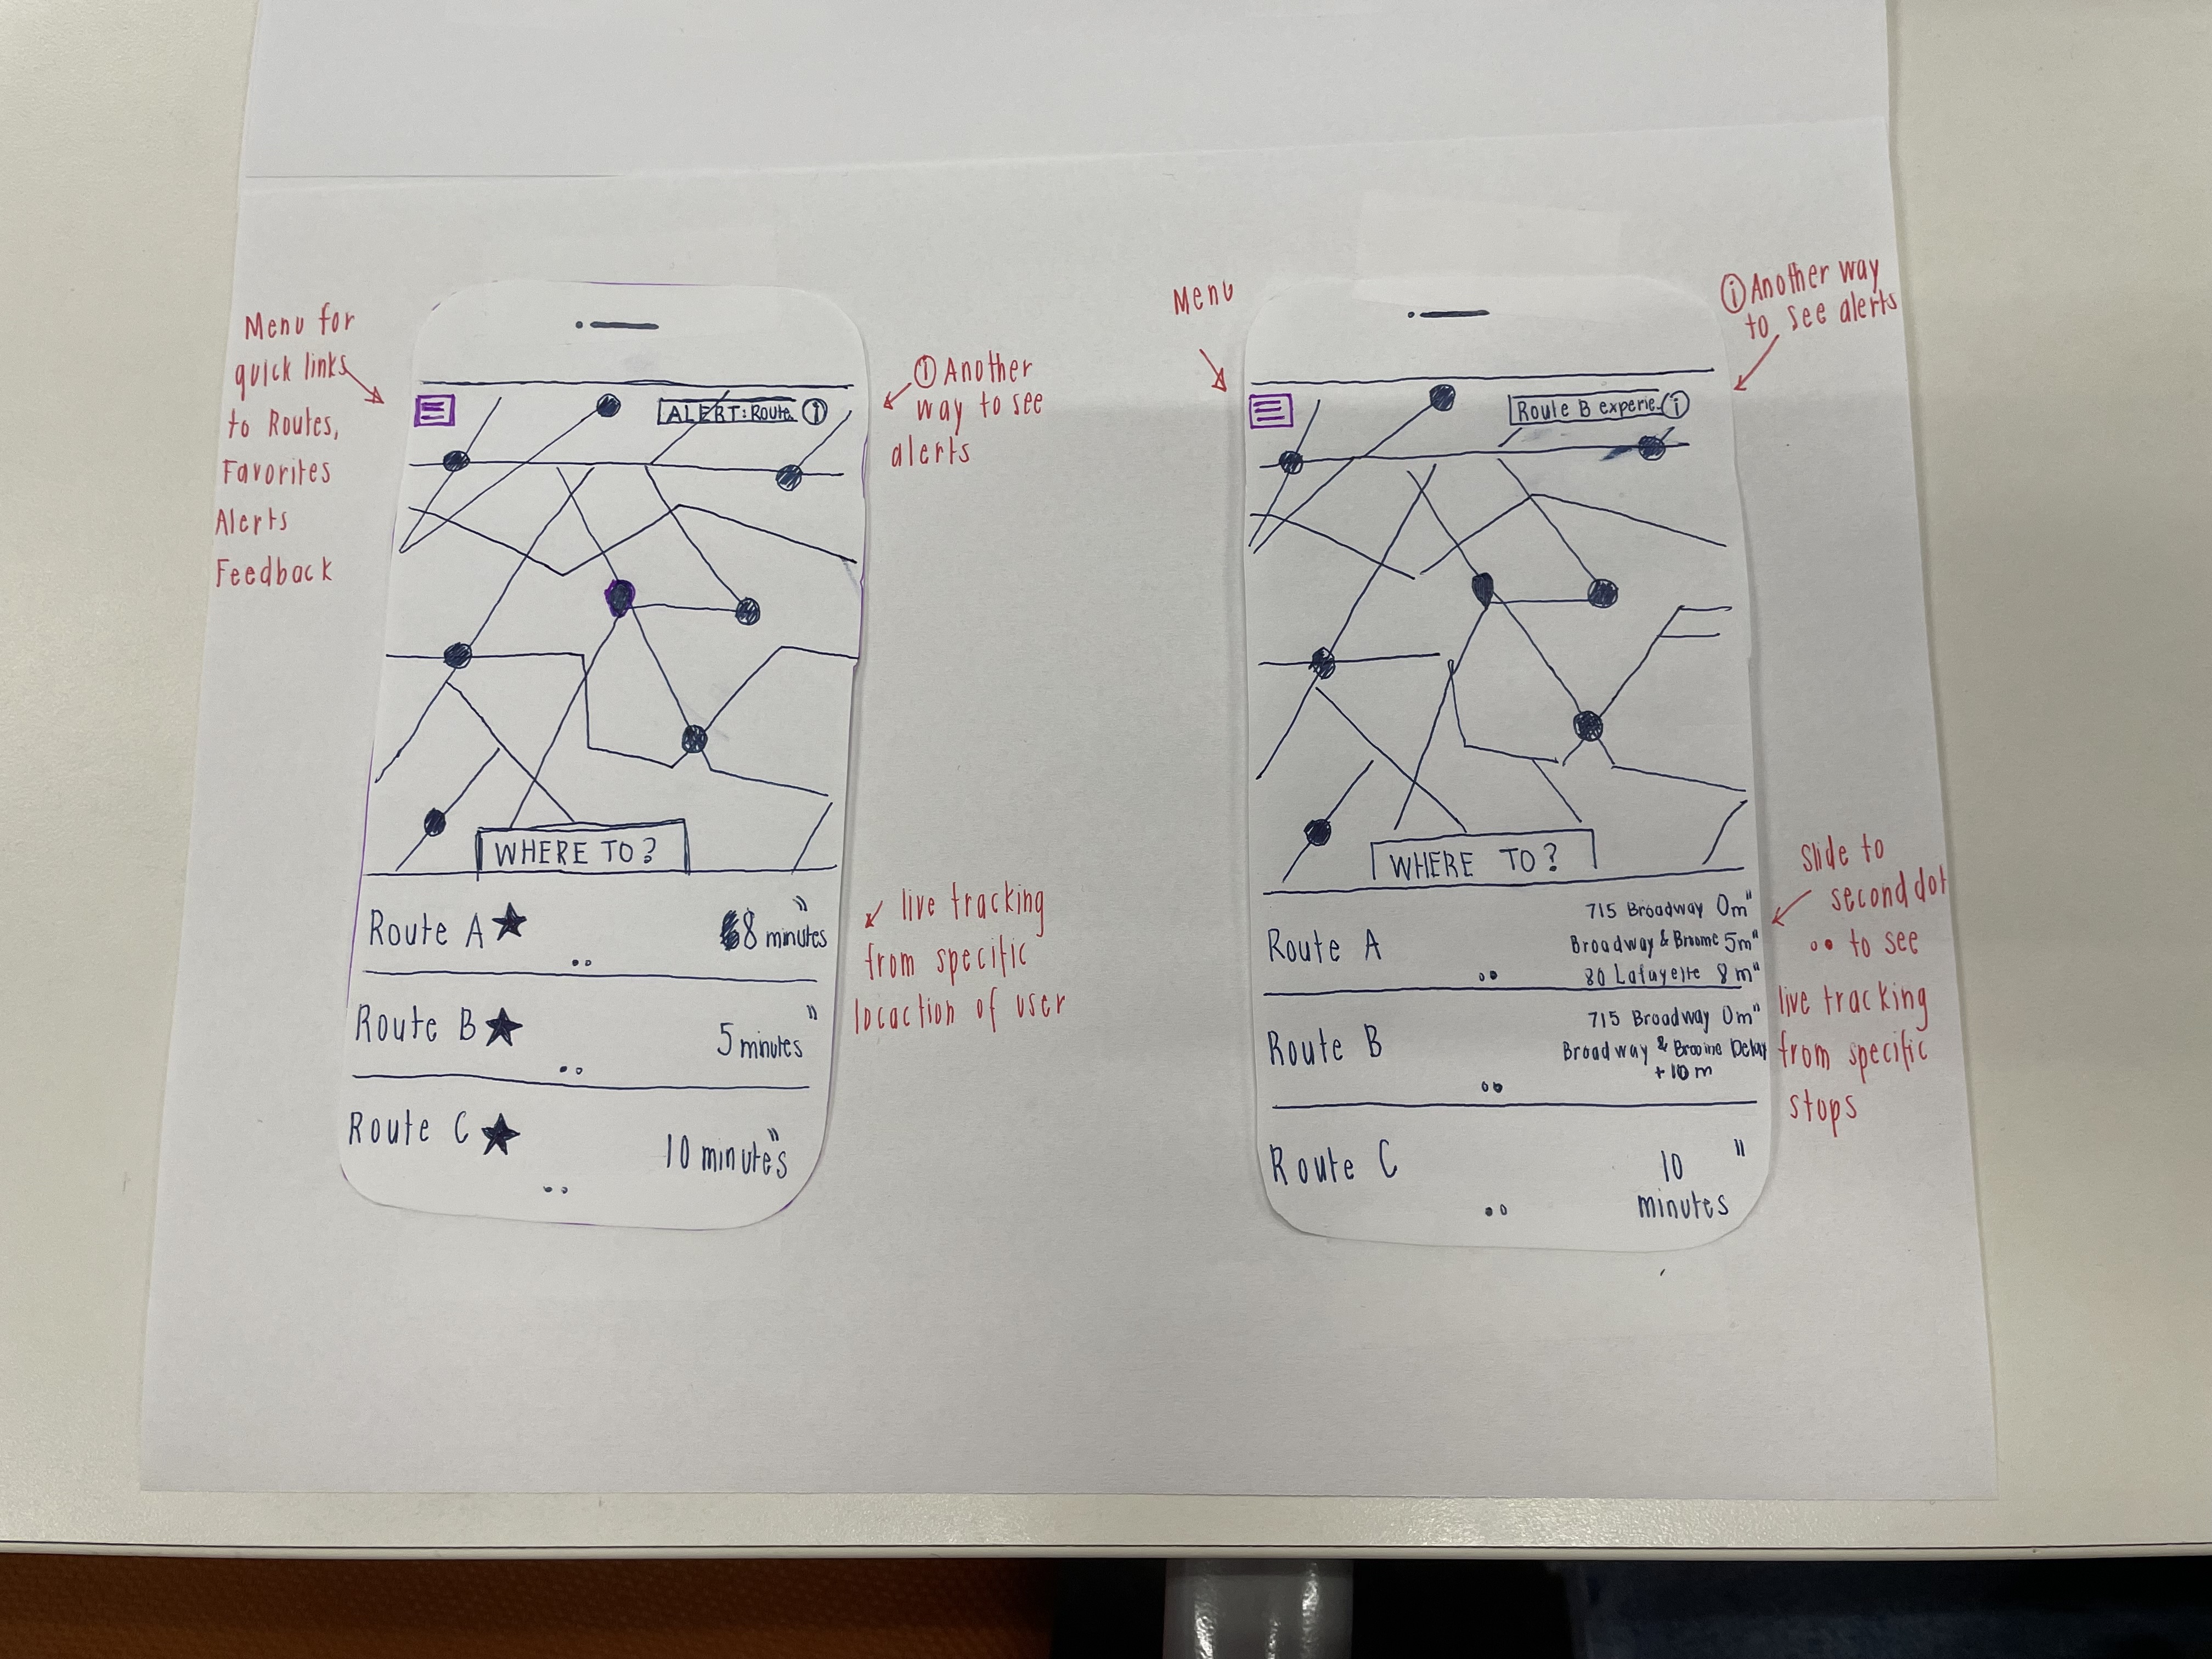 Menu for
quick links
to Routes,
Favorites
Alerts
Feedback
ALERT: Route
i Another
way to see
alerts
WHERE TO?
Route A ★ 8 minutes
Route B ★ 5 minutes
Route C ★ 10 minutes
live tracking
from specific
locaction of user
Menu
i Another way
to see alerts
Route B experie.. i
WHERE TO?
Route A
715 Broadway 0m
Broadway & Broome 5m
80 Lafayette 8m
Route B
715 Broadway 0m
Broadway & Broome Delay
+10 m
Route C
10
minutes
Slide to
second dot
to see
live tracking
from specific
stops